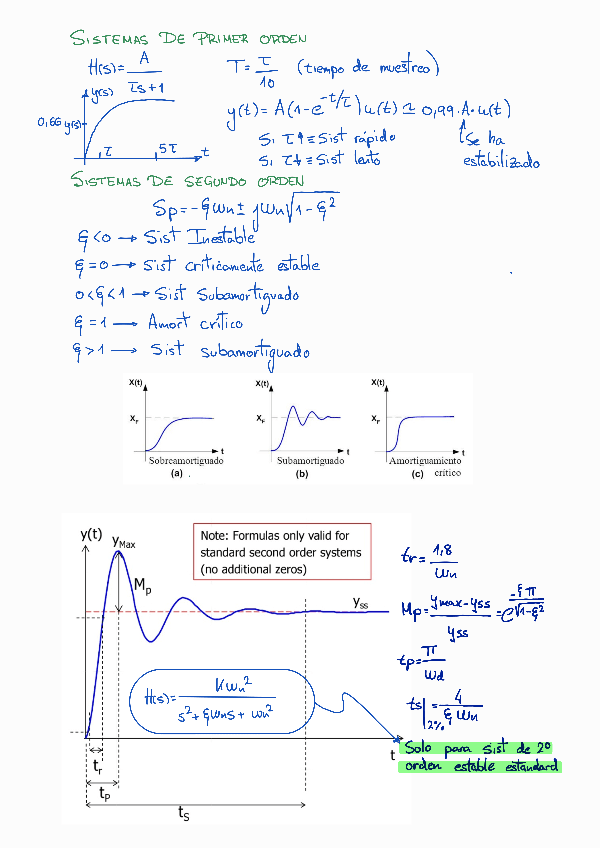 SISTEMAS DE PRIMER ORDEN
H(s) = A / (τs+1)
T = τ/10 (tiempo de muestreo)
y(s)
0,66 y(s)
τ 5τ t
y(t) = A(1-e^{-t/τ})u(t) ≃ 0,99·A·u(t)
Si τ↑ ≡ Sist rápido
Si τ↓ ≡ Sist lento
↑ Se ha
estabilizado
SISTEMAS DE SEGUNDO ORDEN
Sp = -ξωn ± jωn√(1-ξ²)
ξ<0 → Sist Inestable
ξ=0 → Sist críticamente estable
0<ξ<1 → Sist Subamortiguado
ξ=1 → Amort crítico
ξ>1 → Sist subamortiguado
X(t) X(t) X(t)
X_F X_F X_F
t t t
Sobreamortiguado Subamortiguado Amortiguamiento
(a) . (b) (c) crítico
y(t)
y_Max
M_p
Note: Formulas only valid for
standard second order systems
(no additional zeros)
y_ss
H(s) = Kωn² / (s²+ξωns+ωn²)
t
t_r
t_p
t_s
tr = 1,8/ωn
Mp = (ymax-yss)/yss = e^{-ξπ/√(1-ξ²)}
tp = π/ωd
ts|2% = 4/(ξωn)
Solo para sist de 2º
orden estable estandard